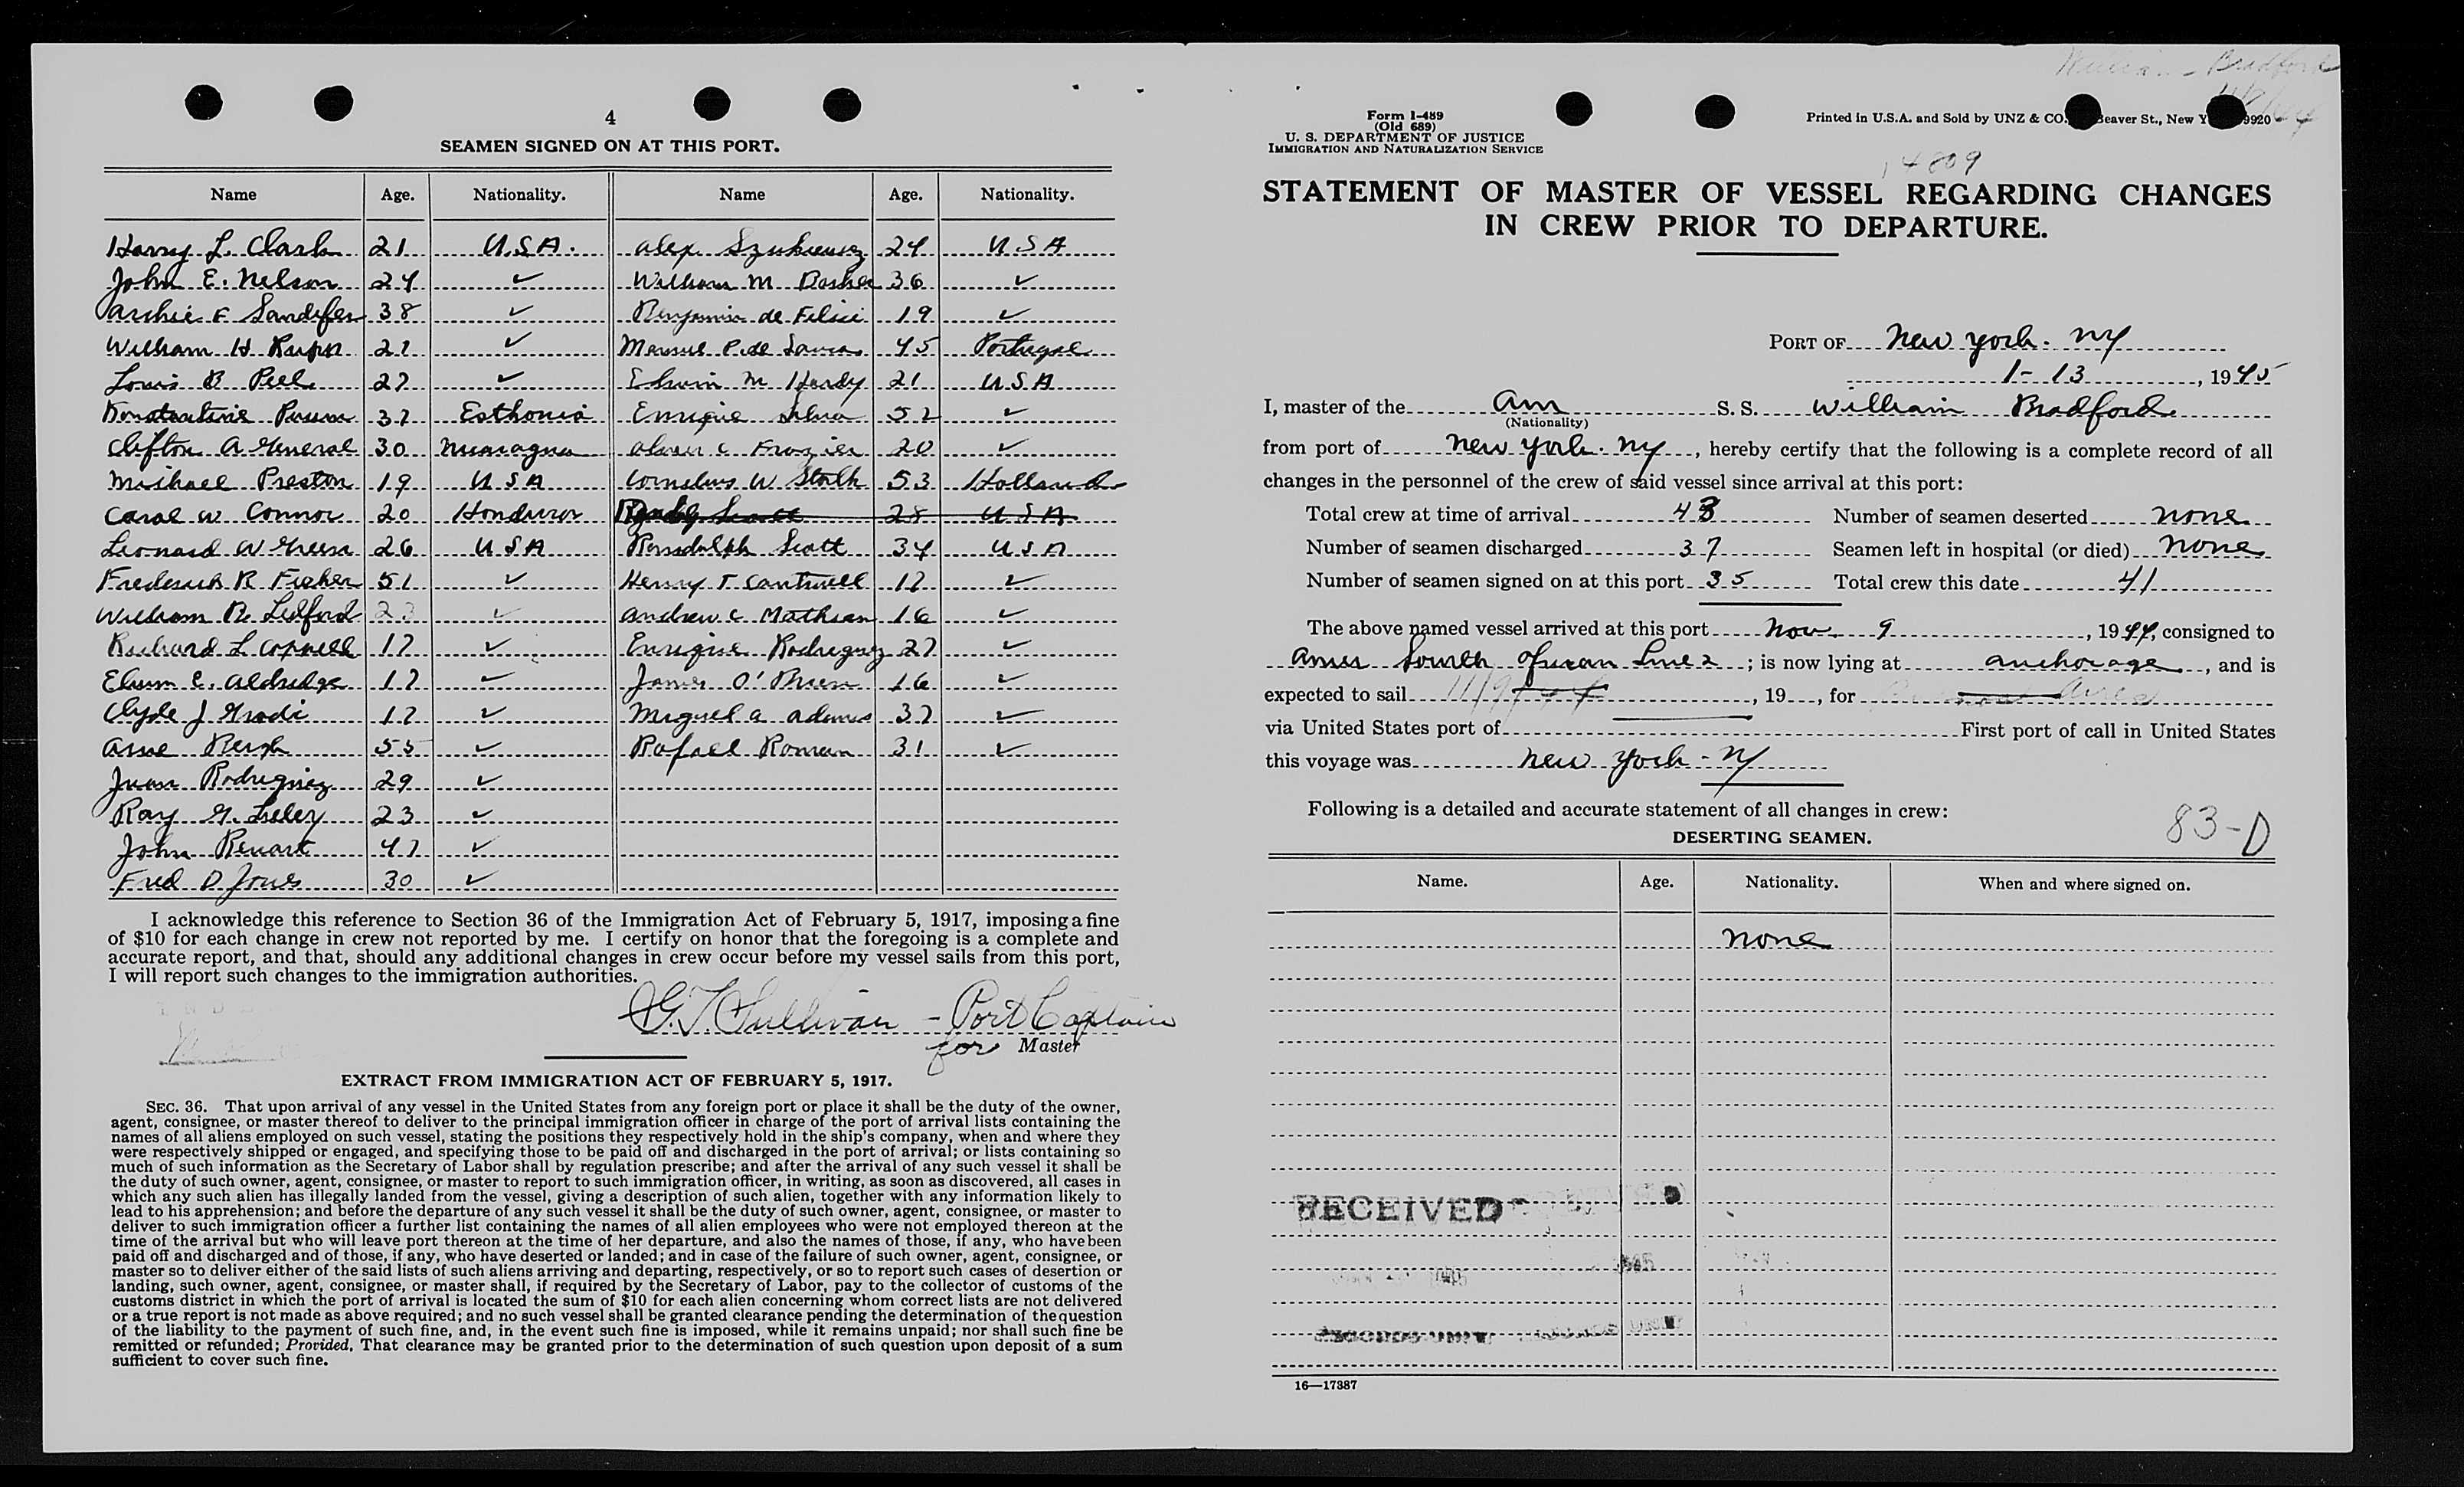 4
SEAMEN SIGNED ON AT THIS PORT.
Name Age. Nationality. Name Age. Nationality.
Harry L. Clark 21 U.S.A. Alex 24 U S A
John E. Nelson 24 ✓ William M 36 ✓
Archie F Sandefer 38 ✓ Benjamin de Felici 19 ✓
William H 21 ✓ Manuel P. de 45 Portugal
Louis B Peel 27 ✓ Edwin M Hardy 21 U S A
Konstantine 37 Esthonia Enrique Silva 52 ✓
Clifton A General 30 Nicaragua Frazier 20 ✓
Michael Preston 19 U S A Cornelius W Stolk 53 Holland
Carol W Connor 20 Honduras Scott 28 U S A
Leonard W Green 26 U S A Randolph Scott 34 U S A
Frederick R Fisher 51 ✓ Henry T Cantwell 17 ✓
William B. Ledford 23 ✓ Andrew C 16 ✓
Richard L 17 ✓ Enrique Rodriguez 27 ✓
E. Aldridge 17 ✓ James O'Brien 16 ✓
Clyde J 17 ✓ Miguel A Adames 37 ✓
Bergh 55 ✓ Rafael Roman 31 ✓
Juan Rodriguez 29 ✓
Ray G. 23 ✓
John 47 ✓
Fred D Jones 30 ✓
I acknowledge this reference to Section 36 of the Immigration Act of February 5, 1917, imposing a fine
of $10 for each change in crew not reported by me. I certify on honor that the foregoing is a complete and
accurate report, and that, should any additional changes in crew occur before my vessel sails from this port,
I will report such changes to the immigration authorities.
G. T. Sullivan - Port Captain
for Master
EXTRACT FROM IMMIGRATION ACT OF FEBRUARY 5, 1917.
SEC. 36. That upon arrival of any vessel in the United States from any foreign port or place it shall be the duty of the owner,
agent, consignee, or master thereof to deliver to the principal immigration officer in charge of the port of arrival lists containing the
names of all aliens employed on such vessel, stating the positions they respectively hold in the ship's company, when and where they
were respectively shipped or engaged, and specifying those to be paid off and discharged in the port of arrival; or lists containing so
much of such information as the Secretary of Labor shall by regulation prescribe; and after the arrival of any such vessel it shall be
the duty of such owner, agent, consignee, or master to report to such immigration officer, in writing, as soon as discovered, all cases in
which any such alien has illegally landed from the vessel, giving a description of such alien, together with any information likely to
lead to his apprehension; and before the departure of any such vessel it shall be the duty of such owner, agent, consignee, or master to
deliver to such immigration officer a further list containing the names of all alien employees who were not employed thereon at the
time of the arrival but who will leave port thereon at the time of her departure, and also the names of those, if any, who have been
paid off and discharged and of those, if any, who have deserted or landed; and in case of the failure of such owner, agent, consignee, or
master so to deliver either of the said lists of such aliens arriving and departing, respectively, or so to report such cases of desertion or
landing, such owner, agent, consignee, or master shall, if required by the Secretary of Labor, pay to the collector of customs of the
customs district in which the port of arrival is located the sum of $10 for each alien concerning whom correct lists are not delivered
or a true report is not made as above required; and no such vessel shall be granted clearance pending the determination of the question
of the liability to the payment of such fine, and, in the event such fine is imposed, while it remains unpaid; nor shall such fine be
remitted or refunded; Provided, That clearance may be granted prior to the determination of such question upon deposit of a sum
sufficient to cover such fine.
William Bradford
Form I-489
(Old 689)
U. S. DEPARTMENT OF JUSTICE
IMMIGRATION AND NATURALIZATION SERVICE
Printed in U.S.A. and Sold by UNZ & CO. Beaver St., New Y 9920
14809
STATEMENT OF MASTER OF VESSEL REGARDING CHANGES
IN CREW PRIOR TO DEPARTURE.
PORT OF New York. NY
1-13, 1945
I, master of the Am S. S. William Bradford
(Nationality)
from port of New York. NY, hereby certify that the following is a complete record of all
changes in the personnel of the crew of said vessel since arrival at this port:
Total crew at time of arrival 43 Number of seamen deserted none
Number of seamen discharged 37 Seamen left in hospital (or died) none
Number of seamen signed on at this port 35 Total crew this date 41
The above named vessel arrived at this port Nov 9, 1944, consigned to
Amer South African Line; is now lying at anchorage, and is
expected to sail 11/9/44, 19 , for Aires
via United States port of First port of call in United States
this voyage was New York - NY
Following is a detailed and accurate statement of all changes in crew:
83-D
DESERTING SEAMEN.
Name. Age. Nationality. When and where signed on.
none
RECEIVED
1945
RECORDS UNIT
16—17387